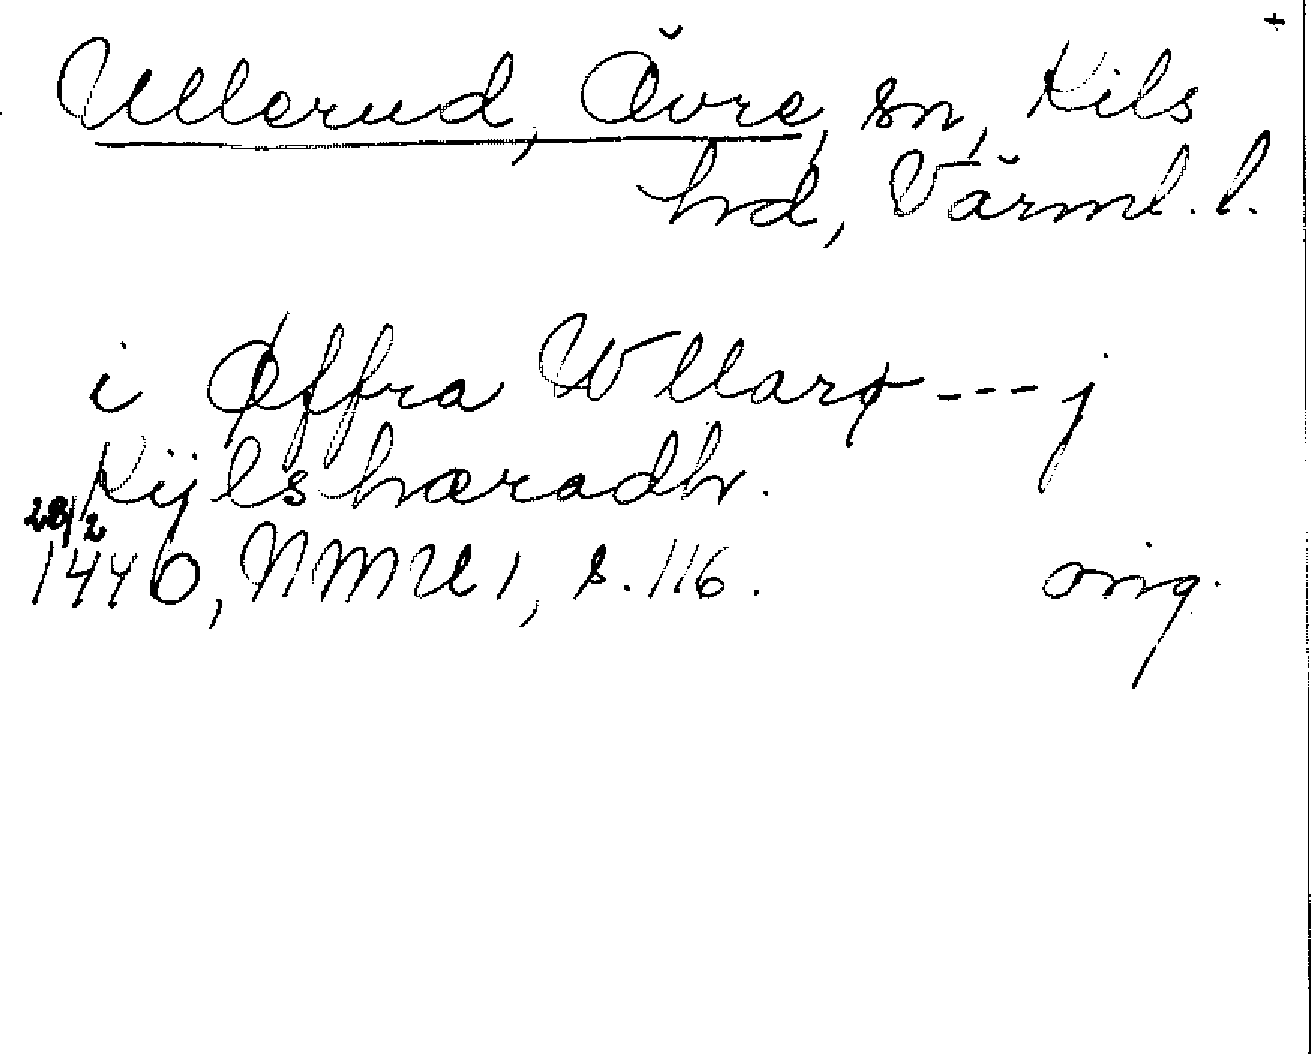 +
Ullerud, Övre, sn, Kils
hd, Värml. l.
i Øffra Wllarø --- j
Kijlshæradh.
28/2
1440, NMU 1, s. 116. orig.